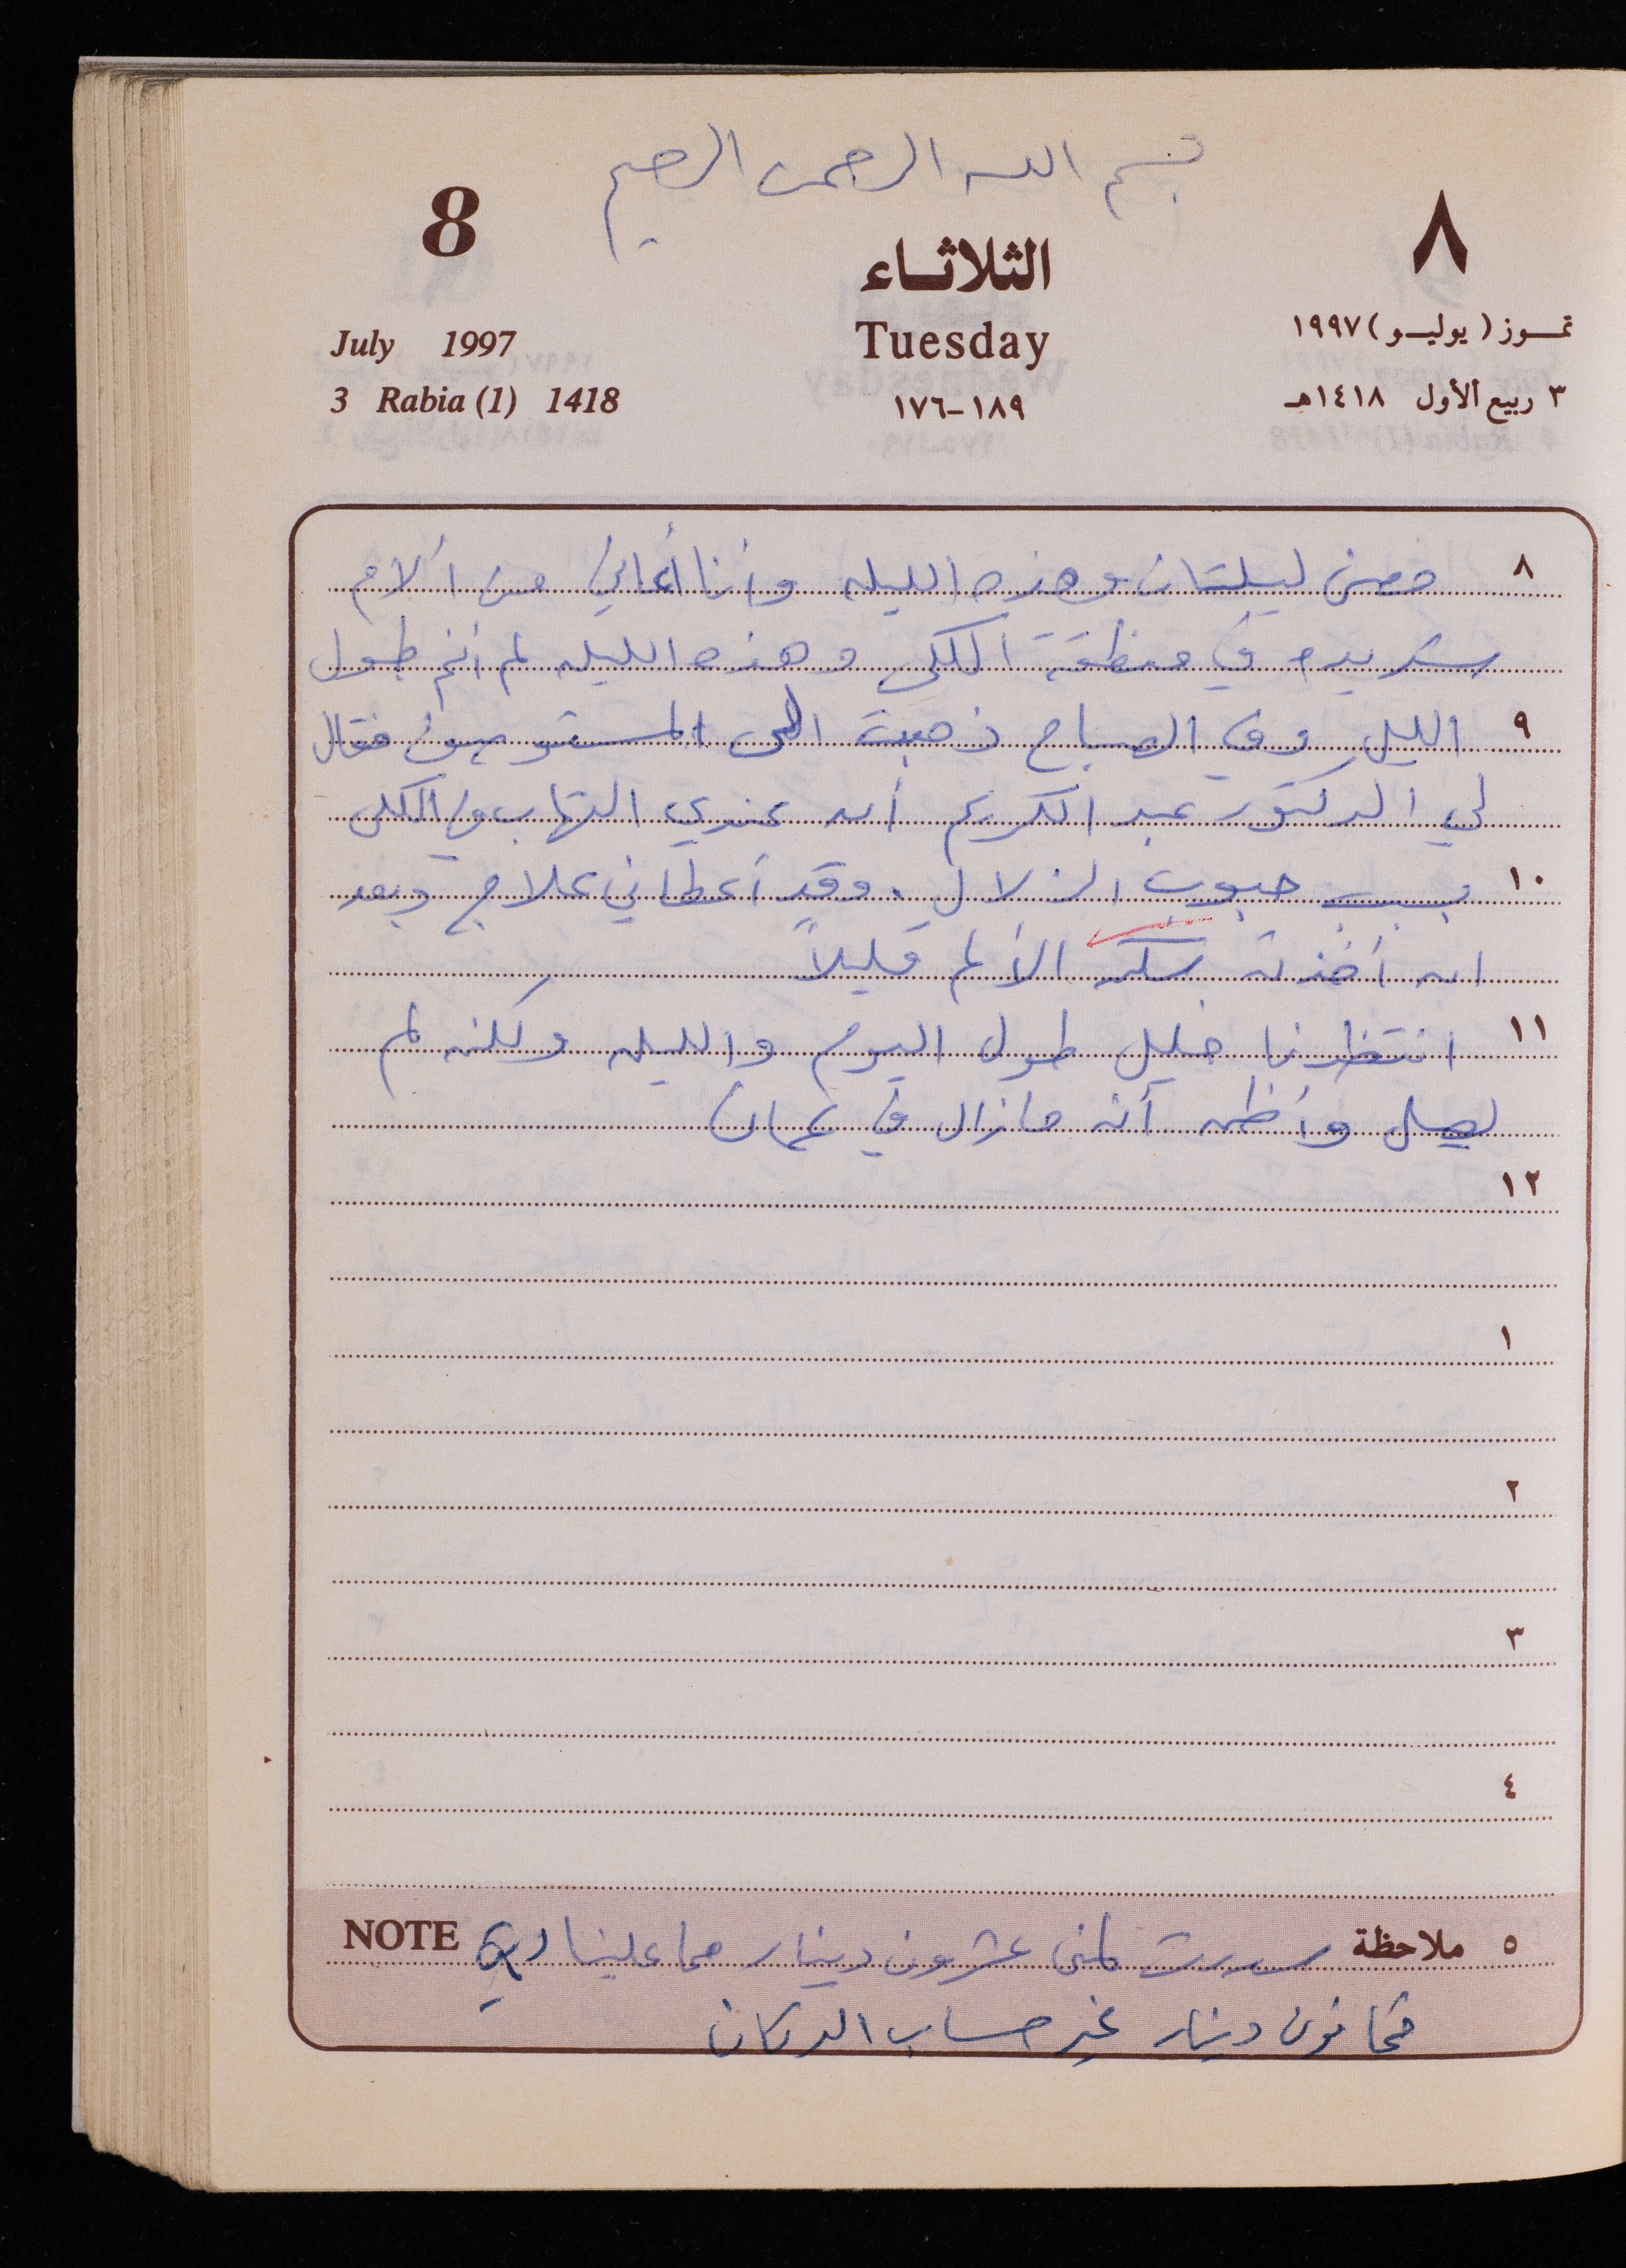 بسم الله الرحمن الرحيم
8 الثلاثاء ٨
July 1997 Tuesday تموز (يوليو) ١٩٩٧
3 Rabia (1) 1418 ١٨٩-١٧٦ ٣ ربيع الأول ١٤١٨هـ
٨ ليلتان وهذه الليله وأنا أعاني من ألام
شديده في منطقة الكلى وهذه الليله لم أنم طول
٩ الليل وفي الصباح ذهبت الى المستوصف فقال
لي الدكتور عبد الكريم أنه عندي التهاب في الكلى
١٠ بسبب حبوب الزلال. وقد أعطاني علاج وبعد
ان أخذته سكن الألم قليلاً
١١ انتظرنا خليل طول اليوم والليله ولكنه لم
يصل وأظن أنه مازال في عمان
١٢
١
٢
٣
٤
٥ ملاحظة سددت لمنى عشرون دينار مما علينا NOTE
ثمانون دينار غير حساب الدكان